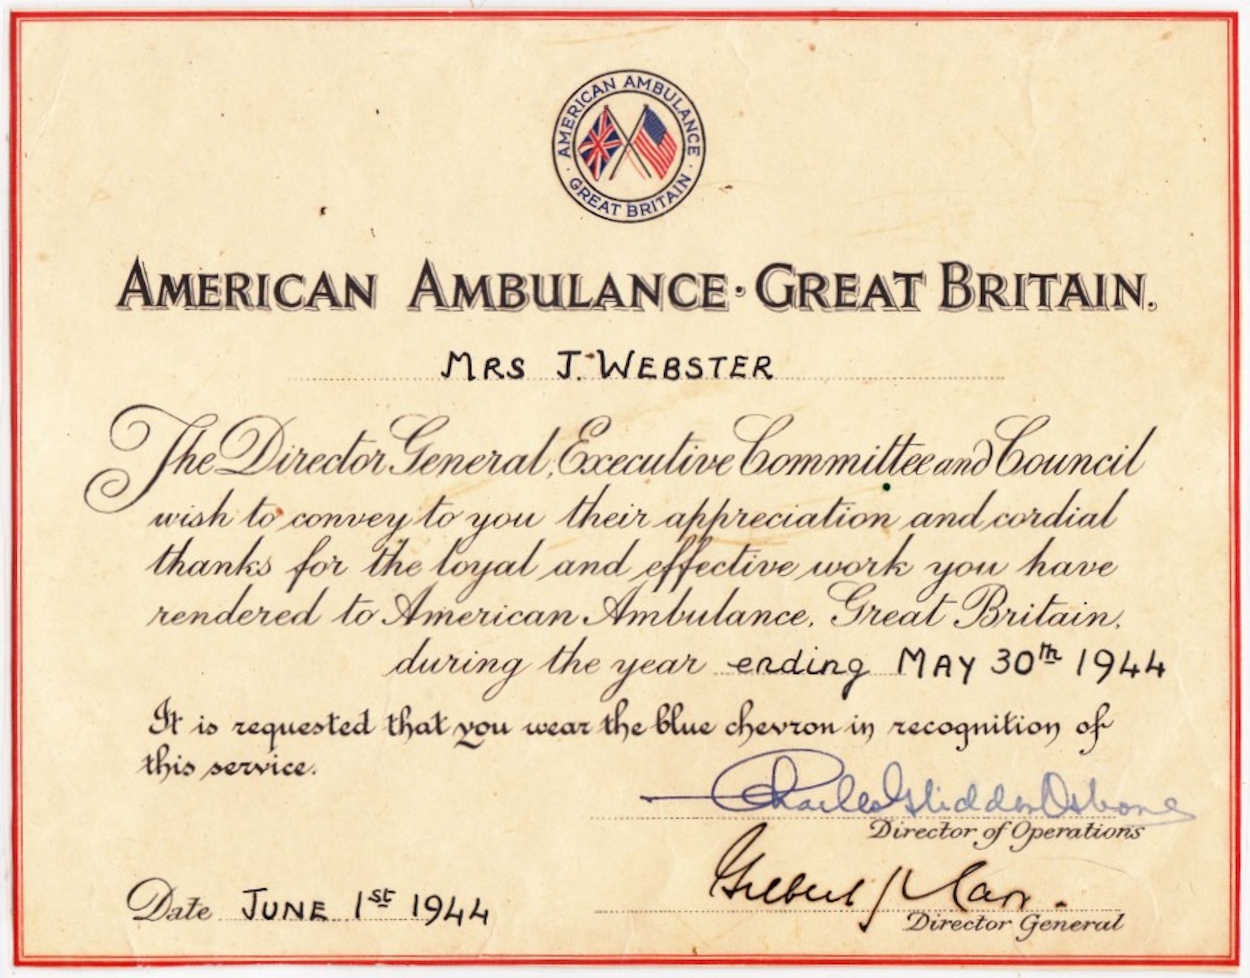 AMERICAN AMBULANCE · GREAT BRITAIN ·
AMERICAN AMBULANCE · GREAT BRITAIN.
MRS J. WEBSTER
The Director General, Executive Committee and Council
wish to convey to you their appreciation and cordial
thanks for the loyal and effective work you have
rendered to American Ambulance, Great Britain,
during the year ending MAY 30th 1944
It is requested that you wear the blue chevron in recognition of
this service.
Charles Glidden Osborne
Director of Operations
Gilbert J Carr.
Director General
Date JUNE 1st 1944